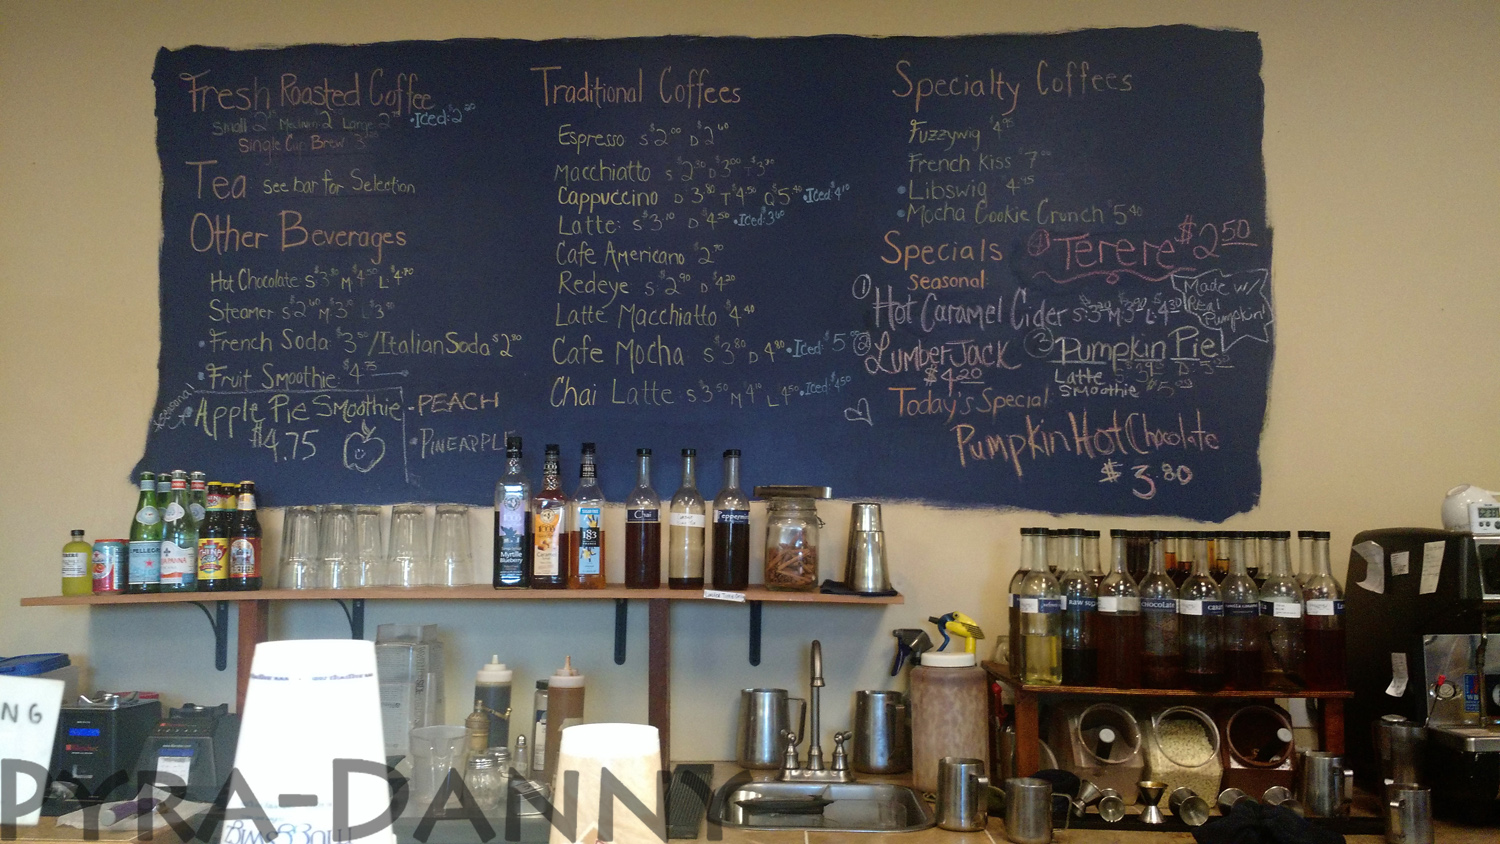 Fresh Roasted Coffee
Small 2 Medium $2 Large 2 •Iced: $2
Single Cup Brew 3
Tea See bar for Selection
Other Beverages
Hot Chocolate S $3.80 M $4.50 L $4.90
Steamer S $2.60 M $3.10 L $3.50
•French Soda: $3.50/Italian Soda $2.80
•Fruit Smoothie: $4.75
Seasonal
Apple Pie Smoothie
$4.75
-PEACH
•PINEAPPLE
Traditional Coffees
Espresso S $2.00 D $2.60
Macchiatto S $2.80 D $3.00 T $3.30
Cappuccino D $3.80 T $4.50 Q $5.40 •Iced: $4.10
Latte: S $3.10 D $4.50 •Iced: 3.60
Cafe Americano $2.70
Redeye S $2.90 D $4.20
Latte Macchiatto $4.40
Cafe Mocha S $3.80 D $4.80 •Iced: $5
Chai Latte S $3.50 M $4.10 L $4.50 •Iced: $4.50
Specialty Coffees
Fuzzywig $4.95
French Kiss $7
•Libswig 4.95
•Mocha Cookie Crunch $5.40
Specials
Seasonal
4 Terere $2.50
1 Hot Caramel Cider S $3.20 M $3.90 L $4.30
Made w/
Real
Pumpkin!
2 LumberJack
$4.20
3 Pumpkin Pie
Latte
Smoothie
Today's Special:
Pumpkin Hot Chocolate
$3.80
PELLEGRINO
PANNA
CHINA
1883
Myrtille
Blueberry
Chai
Peppermint
CHOCOLATE
NG
PYRA-DANNY